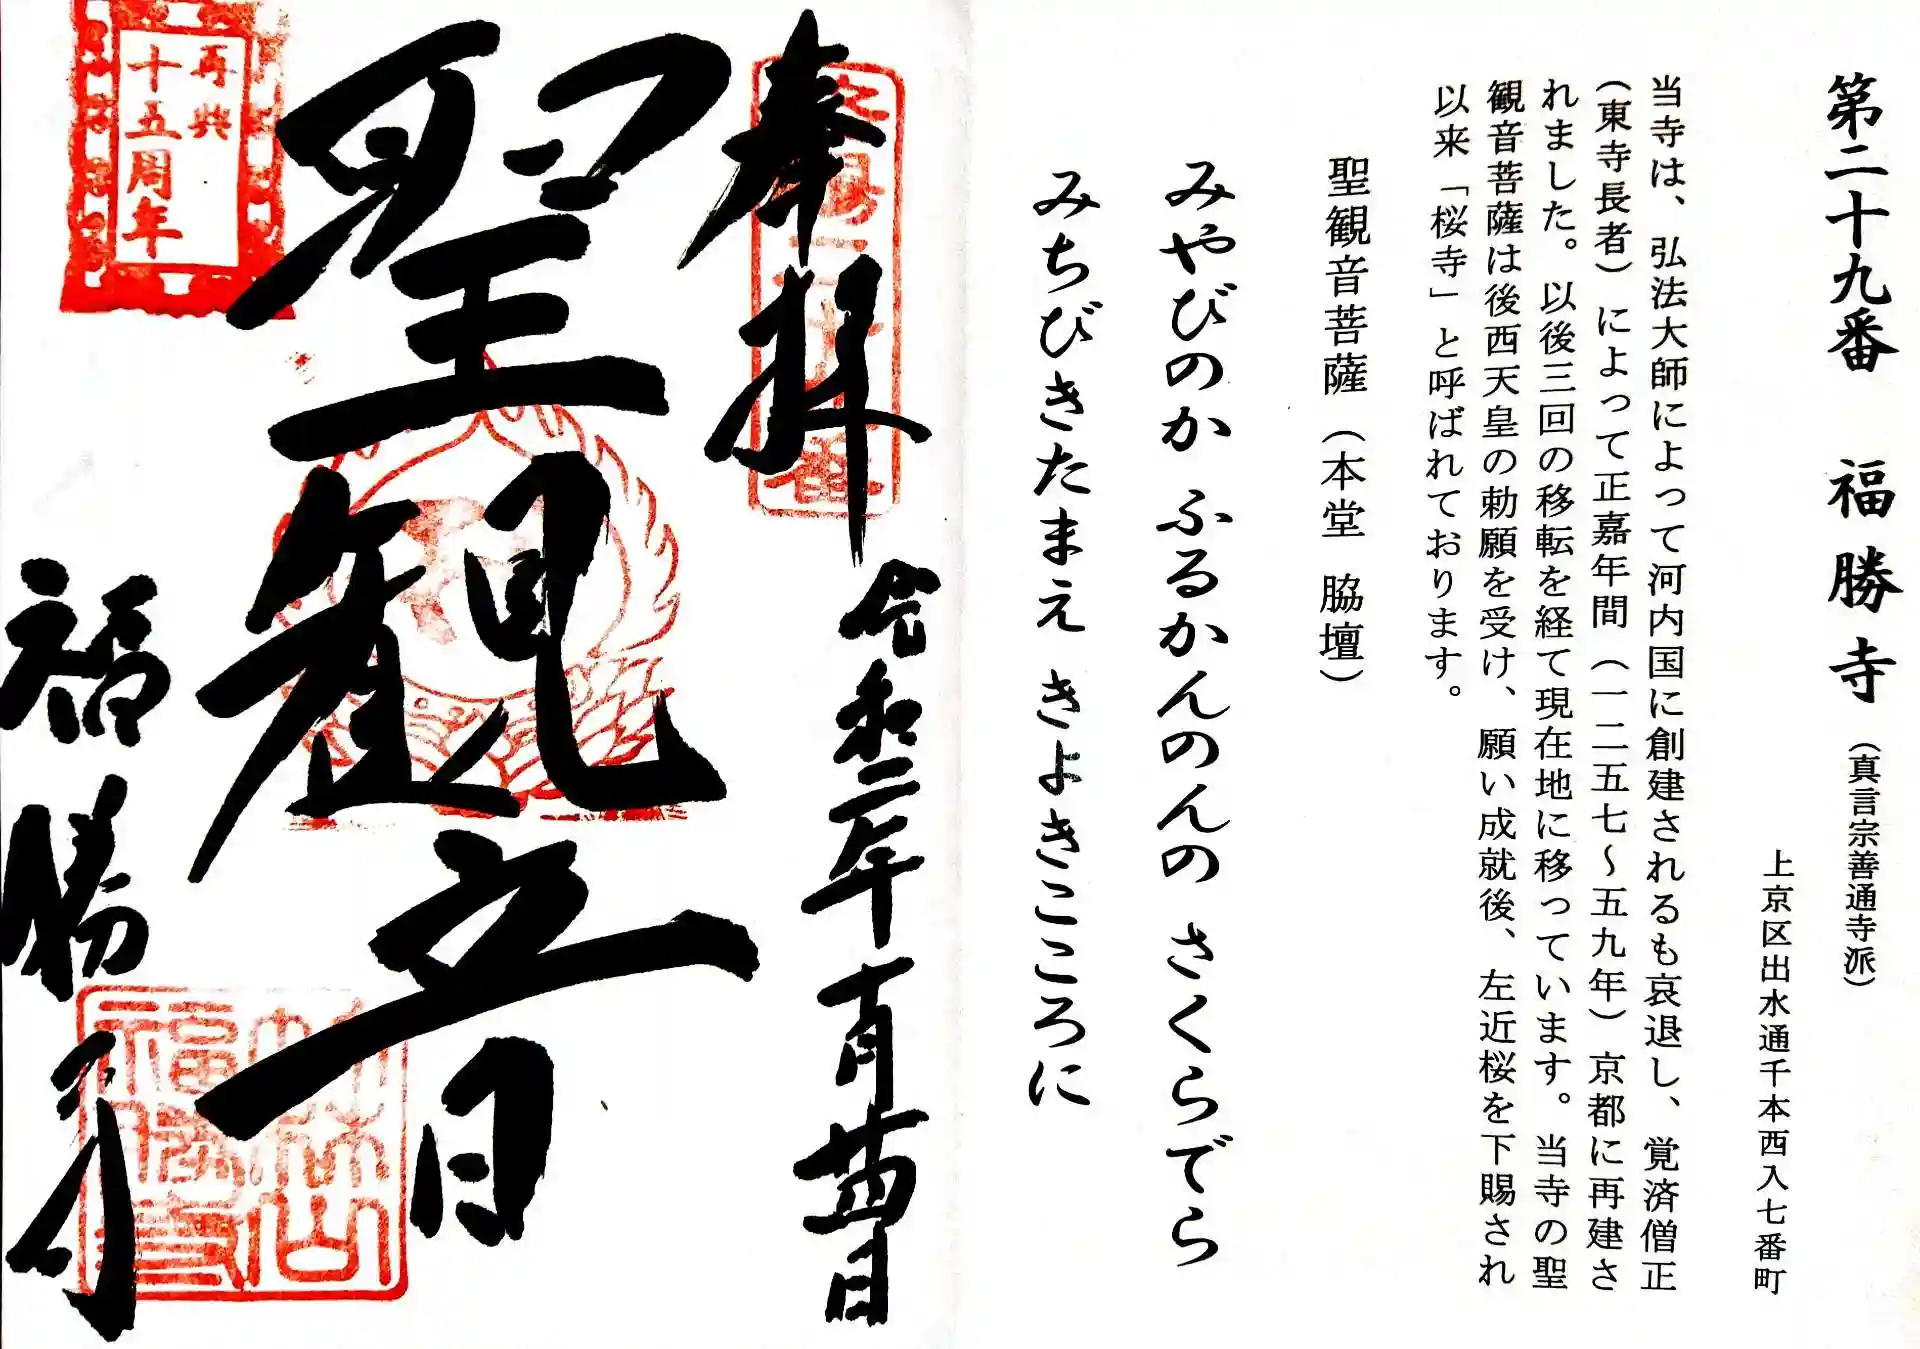 第二十九番 福勝寺（真言宗善通寺派）
上京区出水通千本西入七番町
当寺は、弘法大師によって河内国に創建されるも哀退し、覚済僧正
（東寺長者）によって正嘉年間（一二五七～五九年）京都に再建さ
れました。以後三回の移転を経て現在地に移っています。当寺の聖
観音菩薩は後西天皇の勅願を受け、願い成就後、左近桜を下賜され
以来「桜寺」と呼ばれております。
聖観音菩薩（本堂 脇壇）
みやびのか ふるかんのんの さくらでら
みちびきたまえ きよきこころに
奉拝
令和二年
聖観音
福勝寺
再興
十五周年